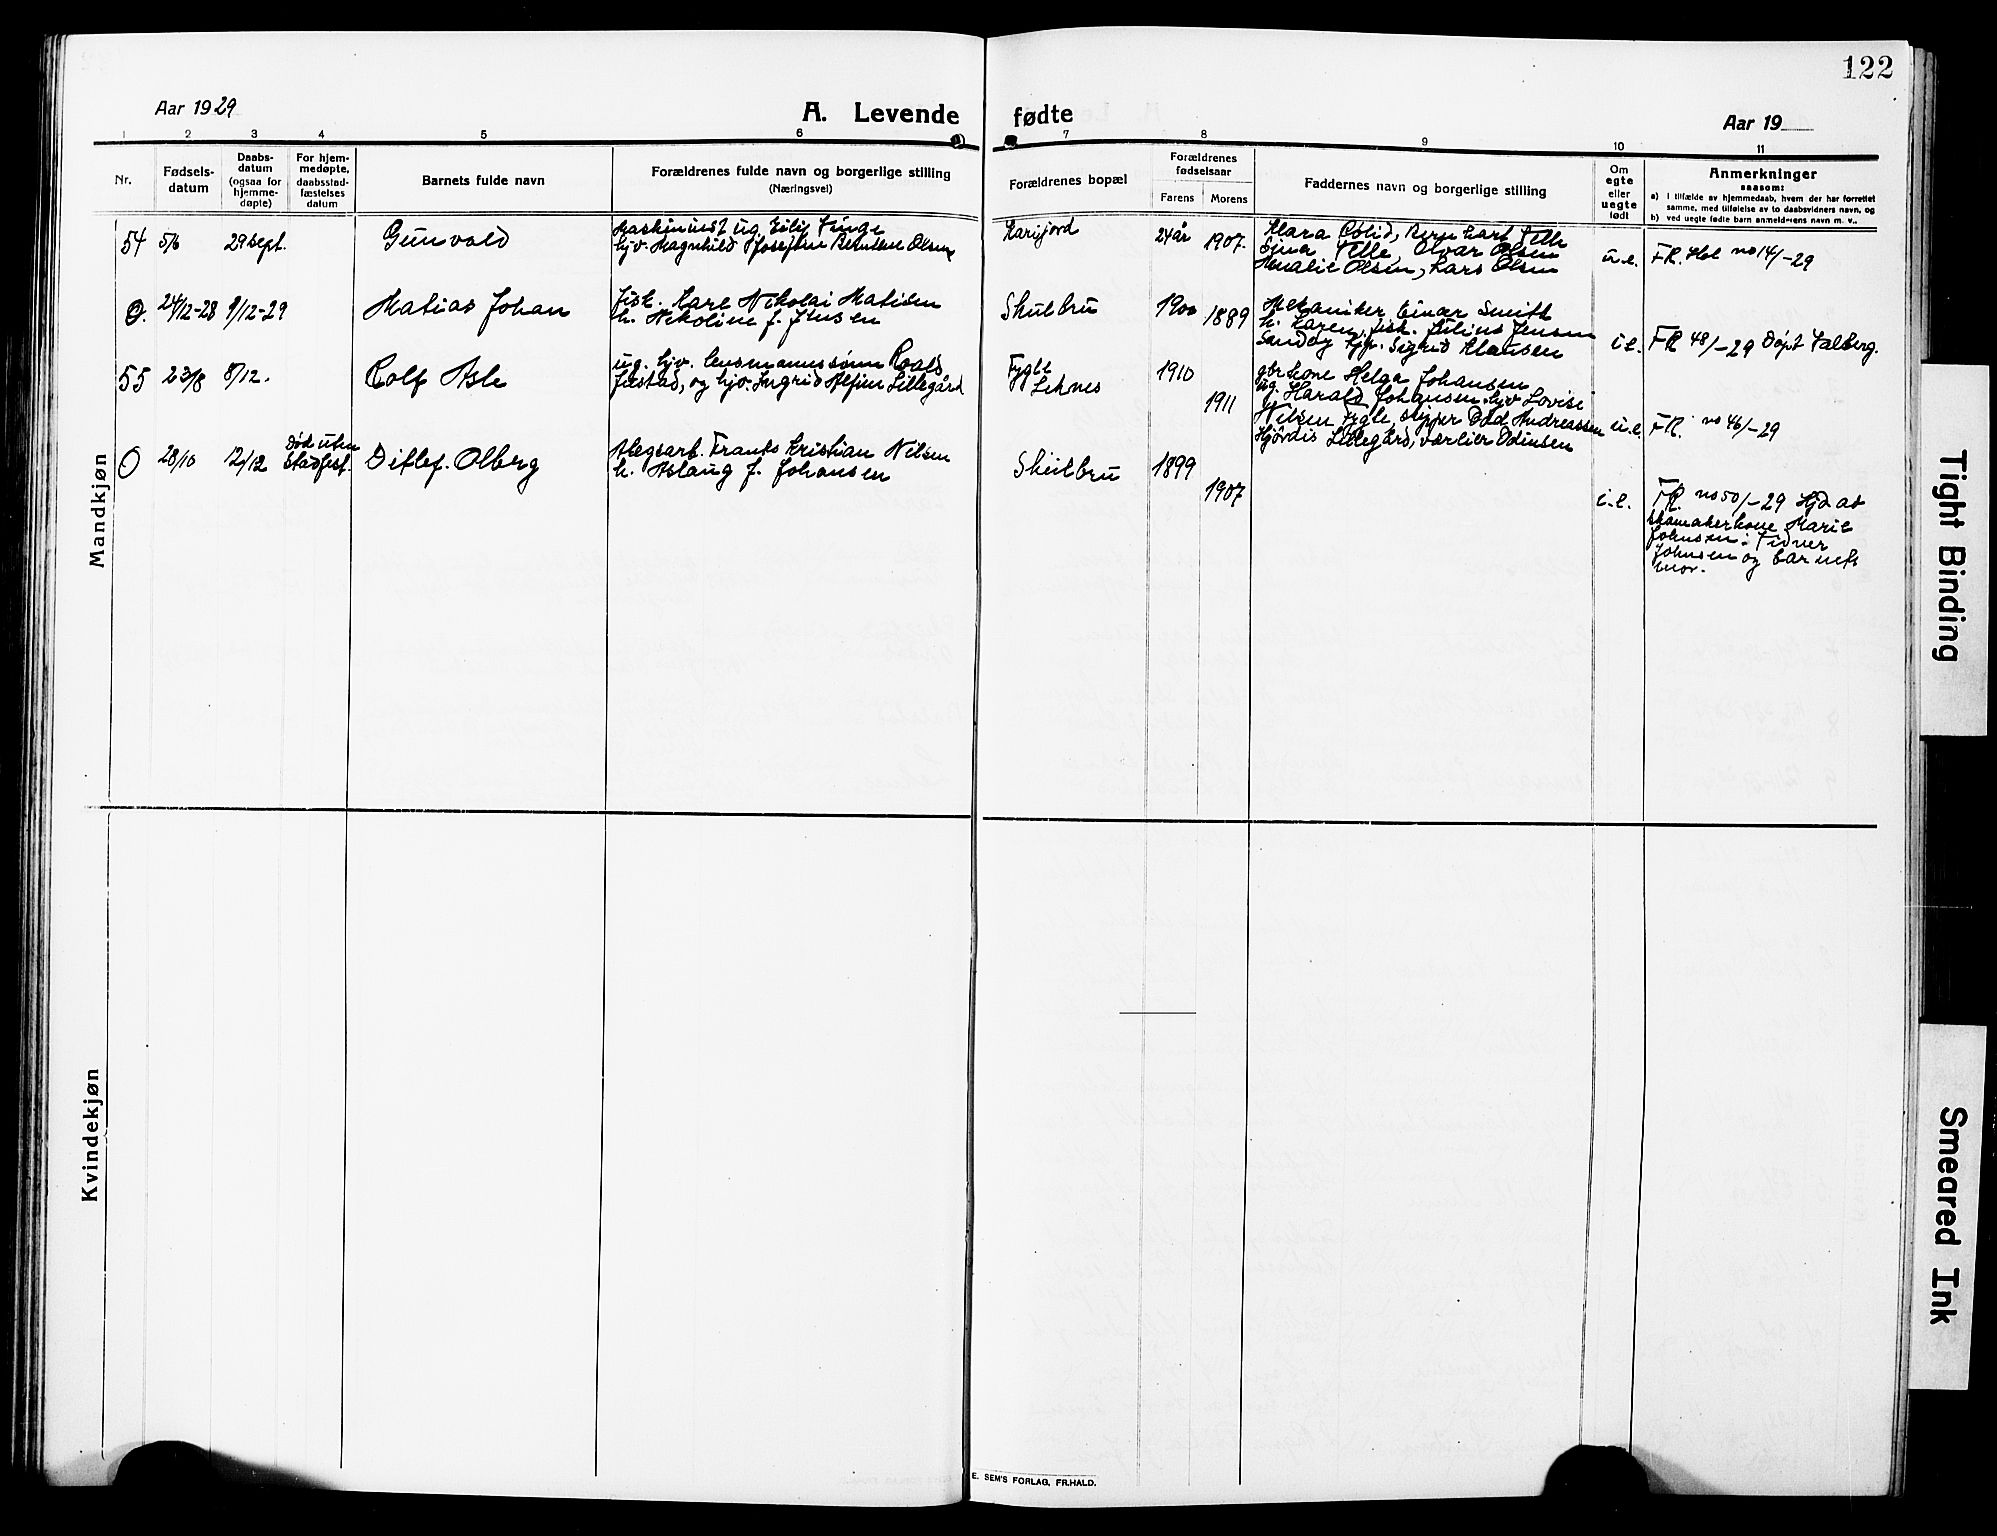 122
Aar 1929
A. Levende fødte
Aar 19
1 2 3 4 5 6 7 8 9 10 11
Nr.
Fødsels-
datum
Daabs-
datum
(ogsaa for
hjemme-
døpte)
For hjem-
medøpte,
daabsstad-
fæstelses
datum
Barnets fulde navn
Forældrenes fulde navn og borgerlige stilling
(Næringsvei)
Forældrenes bopæl
Forældrenes
fødselsaar
Farens Morens
Faddernes navn og borgerlige stilling
Om
egte
eller
uegte
født
Anmerkninger
saasom:
a) i tilfælde av hjemmedaab, hvem der har forrettet
samme, med tilføielse av to daabsvidners navn, og
b) ved uegte fødte barn anmelderens navn m. v..
Mandkjøn
54 5/6 29 sept. Gunvald
Maskinist ug. Eilif Finge
hjv. Magnhild Josefine Berntine Olsen
24 år 1907.
Klara Bolid, Bernhart Telle
Telle, Olvar Olsen
Olsen, Lars Olsen
u.e. FR. Hol no 14/-29
0. 24/12-28 9/12-29 Matias Johan
fisk. Karl Nikolai Matisen
h. Nikoline f. Jensen
Skulbru 1900 1889
Mekaniker Einar Smith
h. Karen, fisk. Julius Jensen
Sandøy hjv. Sigrid Klausen
i.e. FR 48/-29 Døpt Valberg.
55 23/8 8/12. Rolf Asle
ug. hjv. lensmannssønn Roald
Justad, og hjv. Ingrid Alfine Lillegård
Fygle
Leknes
1910 1911
gbrkone Helga Johansen
ug. Harald Johansen, hjv Lovise
Nilsen, Fygle, skipper Andreassen
Hjördis Lillegård, værleier Odinsen
u.e. FR. no 46/-29
0 28/10 12/12
død uten
stadfest.
Ditlef. Olberg
Anlegsarb. Frants Kristian Nilsen
h. Aslaug f. Johansen
Skulbru 1899 1907
i.e. FR. no 50/-29 Hjd. av
skomakerkone Marie
Johnsen:
Johnsen og barnets
mor.
Kvindekjøn
E. SEM'S FORLAG, FR.HALD.
Tight Binding
Smeared Ink